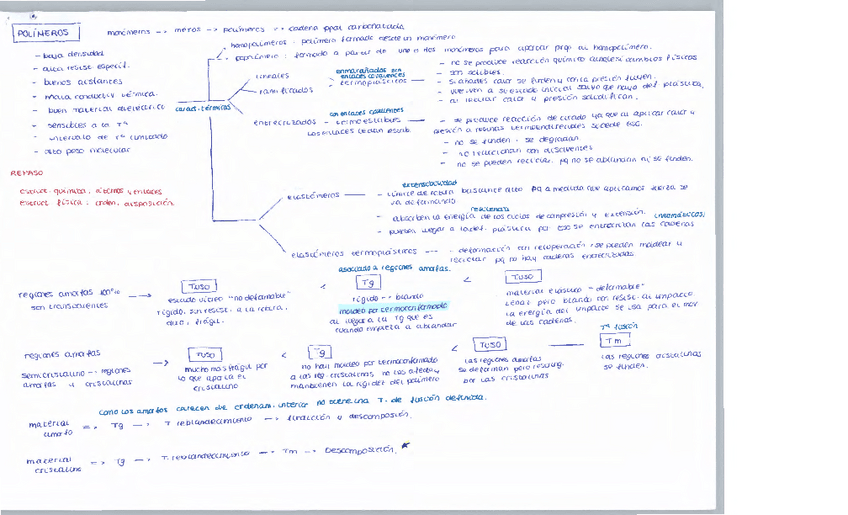 POLÍMEROS
monómeros --> meros --> polímeros --> cadena ppal carbonatada
- homopolímeros: polímero formado desde un monómero
- copolímero: formado a partir de uno o dos monómeros para aportar prop. al homopolímero.
- baja densidad
- alta resist. especif.
- buenos aislantes
- mala conductiv. térmica.
- buen material dieléctrico
- sensibles a la Tª
- intervalo de Tª limitado
- alto peso molecular
caract. térmicas
lineales
ramificados
enmarañados sin
enlaces covalentes
termoplásticos
- no se produce reacción química cambios físicos
- son solubles.
- si añades calor se funden y con la presión fluyen.
- vuelven a su estado inicial salvo que haya def. plástica.
- al retirar calor y presión solidifican.
con enlaces covalentes
entrecruzados - termoestables
- se produce reacción de curado ya que al aplicar calor y
presión a resinas
- no se funden - se degradan.
- no reaccionan con disolventes
- no se pueden reciclar, pq no se ablandan ni se funden.
REPASO
estruct. química: átomos y enlaces
estruct. física: orden, disposición.
elastómeros
extensibilidad
- límite de rotura bastante alto pq a medida que aplicamos fuerza se
va deformando
resiliencia
- absorben la energía de los ciclos de compresión y extensión.
- pueden llegar a la def. plástica por eso se entrecruzan las cadenas
elastómeros termoplásticos --- - deformación con recuperación - se pueden moldear y
reciclar pq no hay cadenas entrecruzadas
asociado a regiones amorfas.
regiones amorfas 100%
son translucientes
TUSO
estado vítreo "no deformable"
rígido, sin resist. a la rotura,
duro, frágil.
<
Tg
rígido -- blando
moldeo por termoconformado
al llegar a la Tg que es
cuando empieza a ablandar
<
TUSO
material elástico - deformable
tenaz pero blando con resist. al impacto
la energía del impacto se usa para el mov
de las cadenas.
regiones amorfas
semicristalino - regiones
amorfas y cristalinas
TUSO
mucho más frágil por
lo que aporta el
cristalino
<
Tg
no hay moldeo por termoconformado
a las reg. cristalinas, no las afecta y
mantienen la rigidez del polímero
<
TUSO
las regiones amorfas
se deforman pero
por las cristalinas
Tª fusión
Tm
las regiones cristalinas
se funden.
como los amorfos carecen de ordenam. interior no tiene una T. de fusión definida.
material
amorfo => Tg --> T. reblandecimiento --> fundición o descomposición.
material
cristalino => Tg --> T. reblandecimiento --> Tm --> Descomposición.